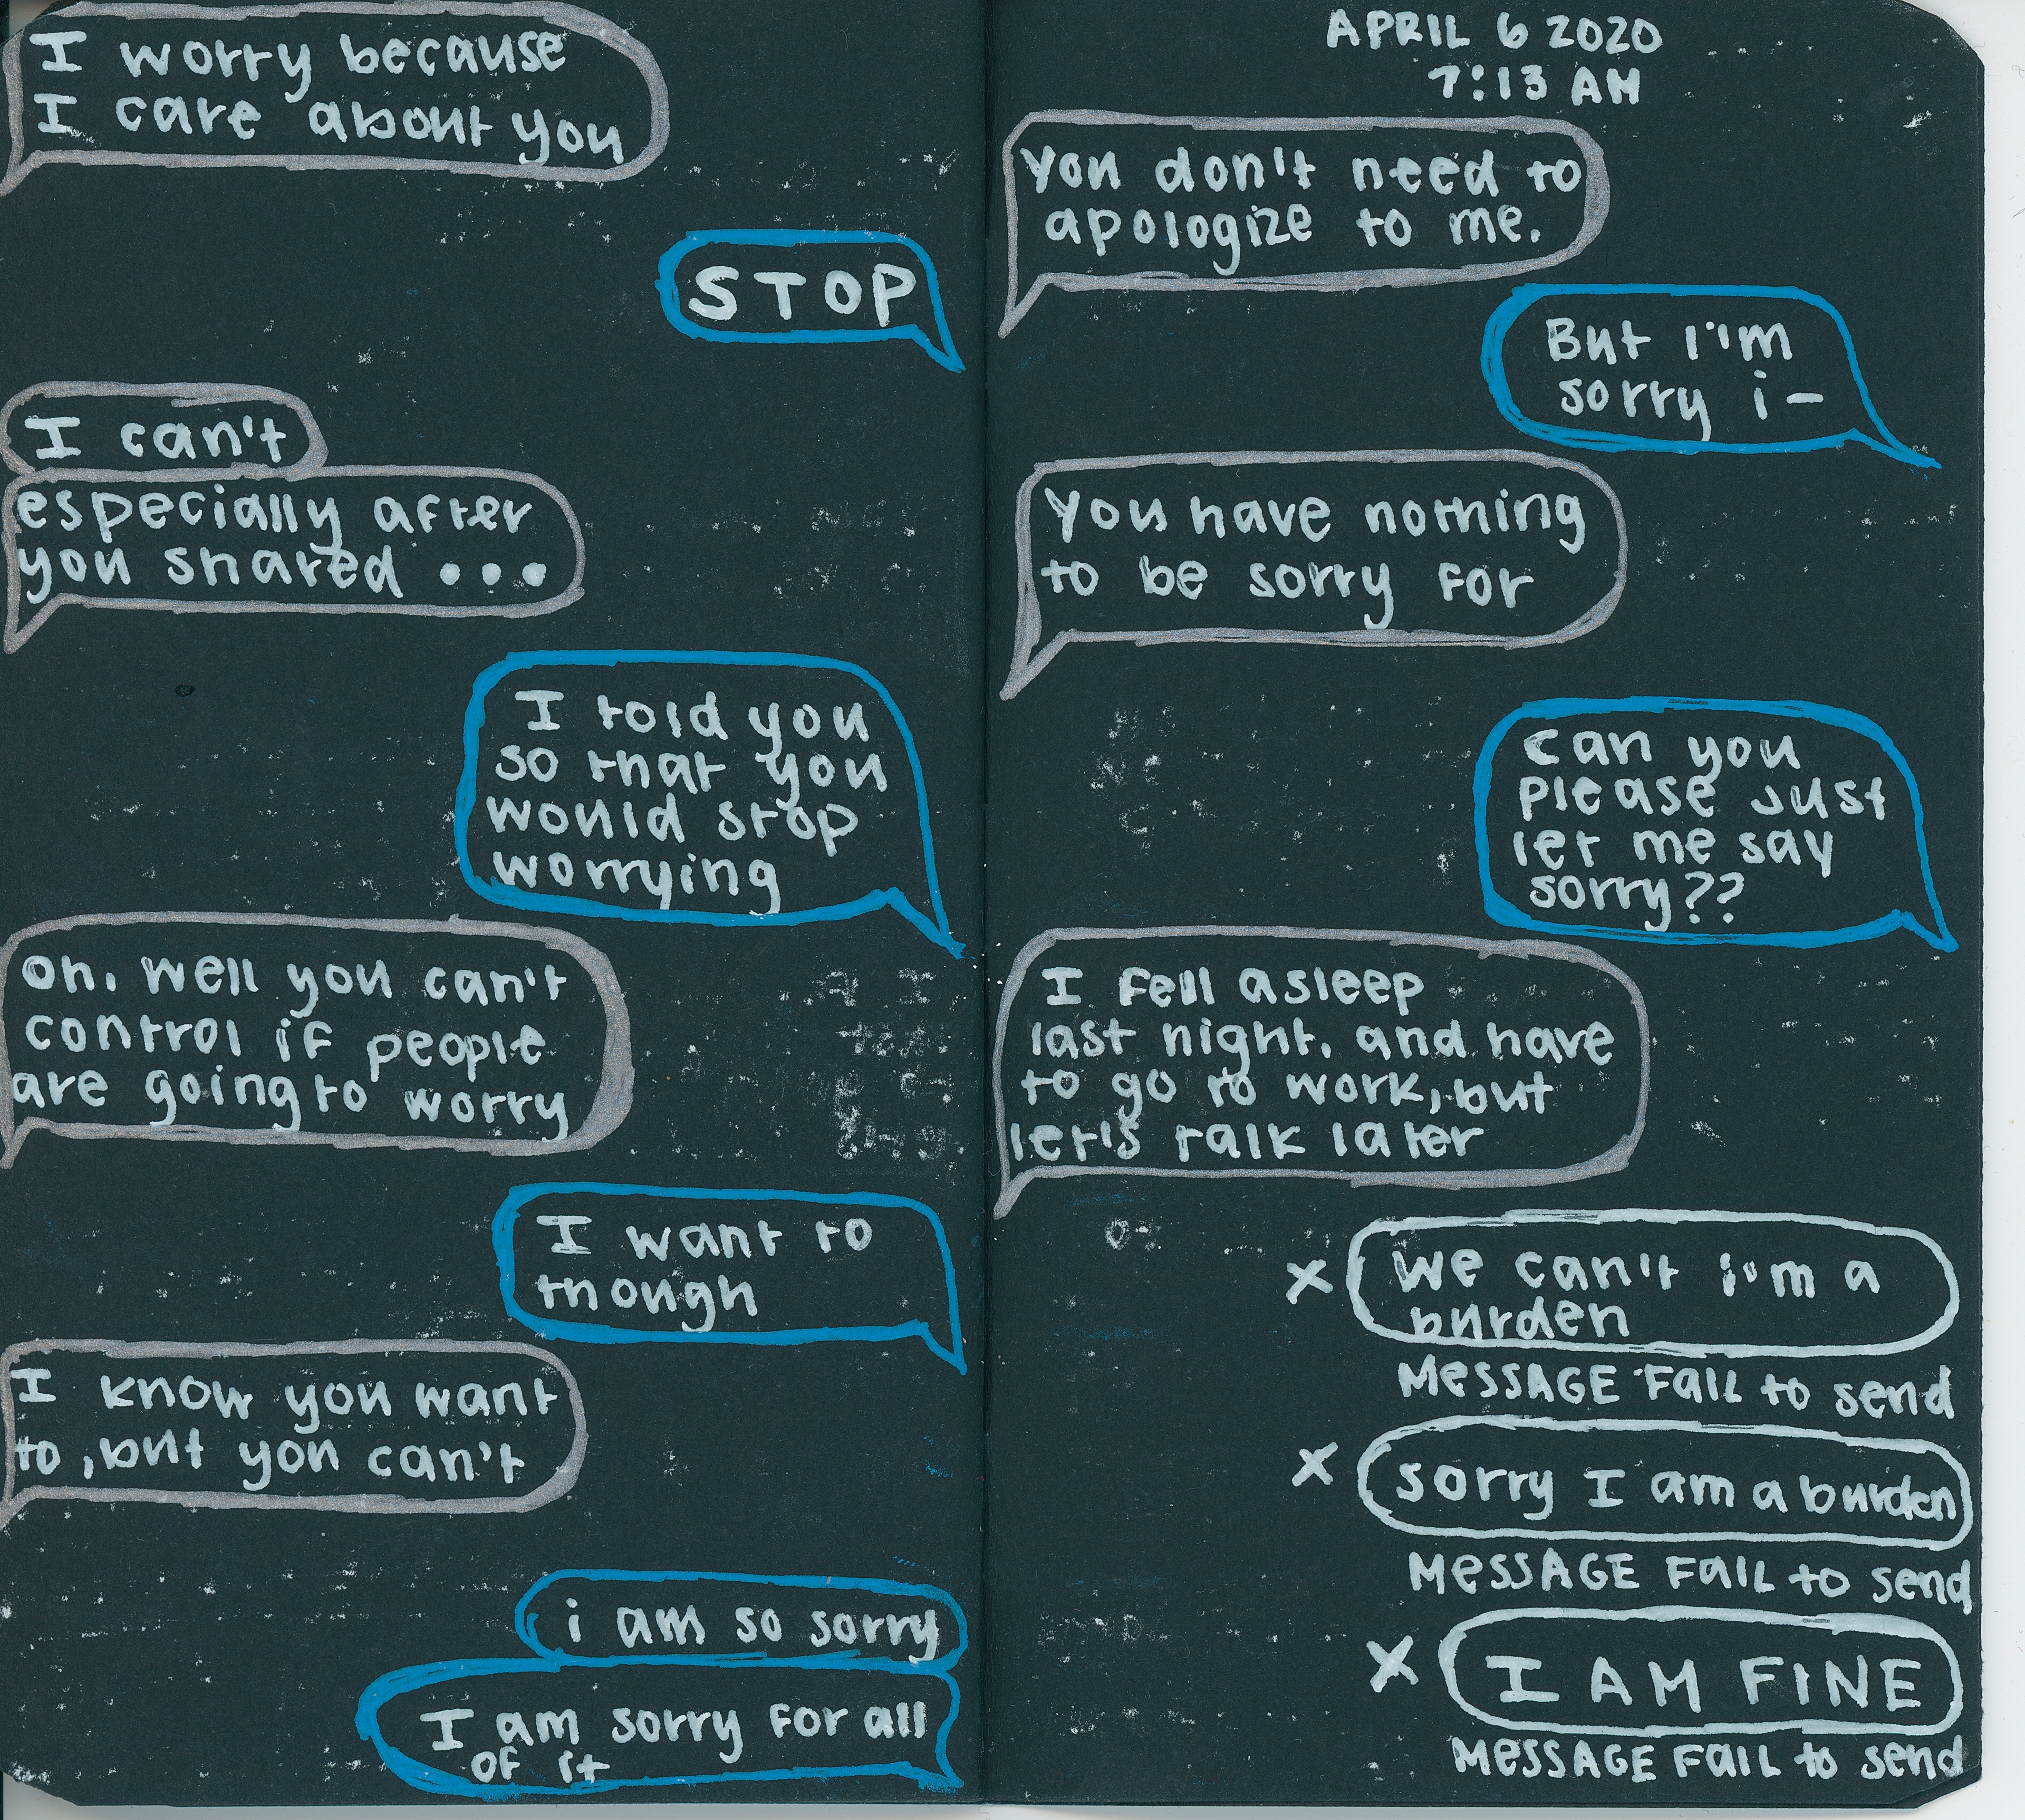 I worry because
I care about you
STOP
I can't
especially after
you shared ...
I told you
so that you
would stop
worrying
oh, well you can't
control if people
are going to worry
I want to
though
I know you want
to, but you can't
i am so sorry
I am sorry for all
of it
APRIL 6 2020
7:13 AM
you don't need to
apologize to me.
But I'm
sorry i-
you have nothing
to be sorry for
can you
please just
let me say
sorry??
I fell asleep
last night, and have
to go to work, but
let's talk later
x we can't i'm a
burden
MESSAGE FAIL to send
x sorry I am a burden
MESSAGE FAIL to send
x I AM FINE
MESSAGE FAIL to send